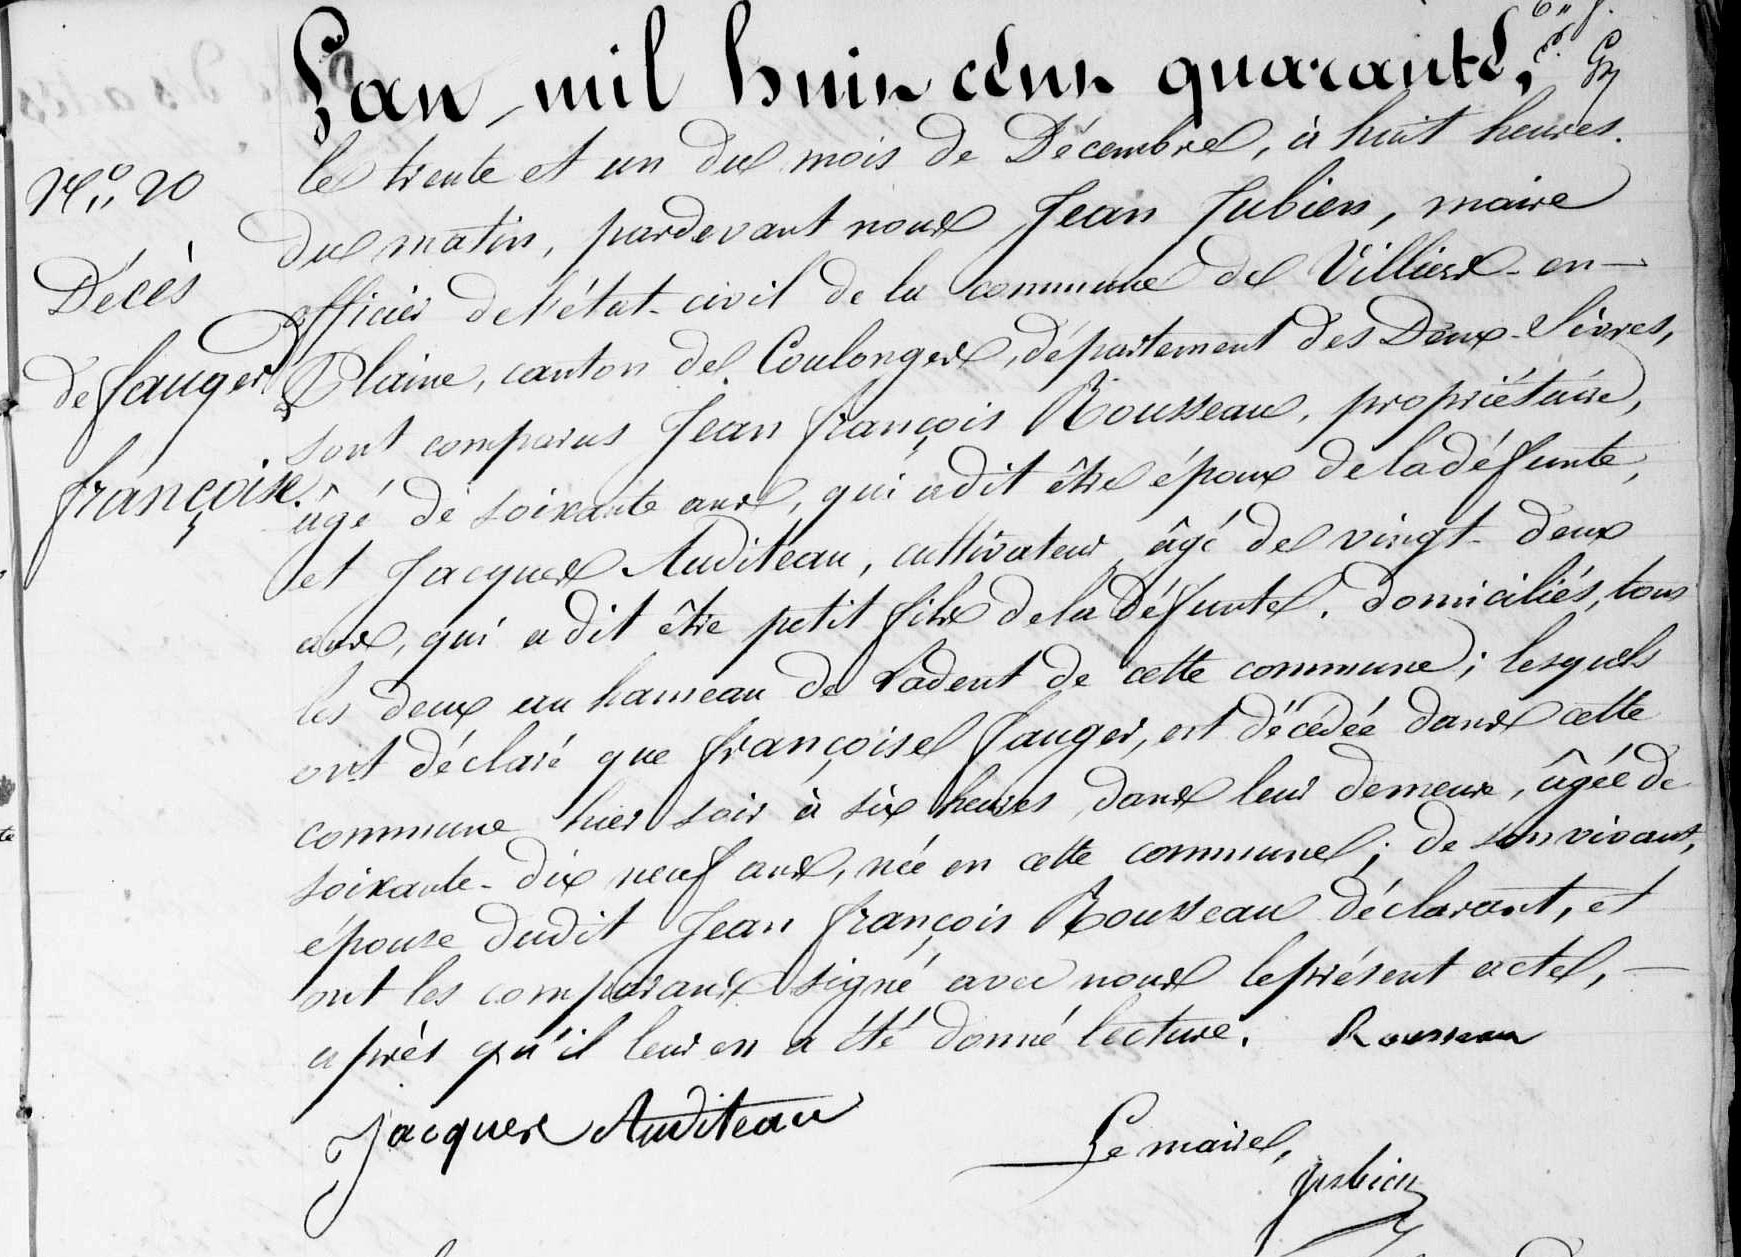 L'an mil huit cent quarante,
N.º 20
Décès
de fauger
françoise.
le trente et un du mois de Décembre, à huit heures.
du matin, pardevant nous Jean Jubien, maire
officier de l'état-civil de la commune de Villiers-en-
Plaine, canton de Coulonges, département des Deux-Sèvres,
sont comparus Jean françois Rousseau, propriétaire,
âgé de soixante ans, qui a dit être époux de la défunte,
et Jacques Auditeau, cultivateur, âgé de vingt-deux
ans, qui a dit être petit fils de la Défunte. Domiciliés, tous
les deux au hameau de de cette commune; lesquels
ont déclaré que françoise fauger, est décédée dans cette
commune hier soir à six heures, dans leur demeure, âgée de
soixante-dix neuf ans, née en cette commune; de son vivant,
épouse dudit Jean françois Rousseau déclarant, et
ont les comparans signé avec nous le présent acte, -
après qu'il leur en a été donné lecture. Rousseau
Jacques Auditeau
Le maire,
Jubien